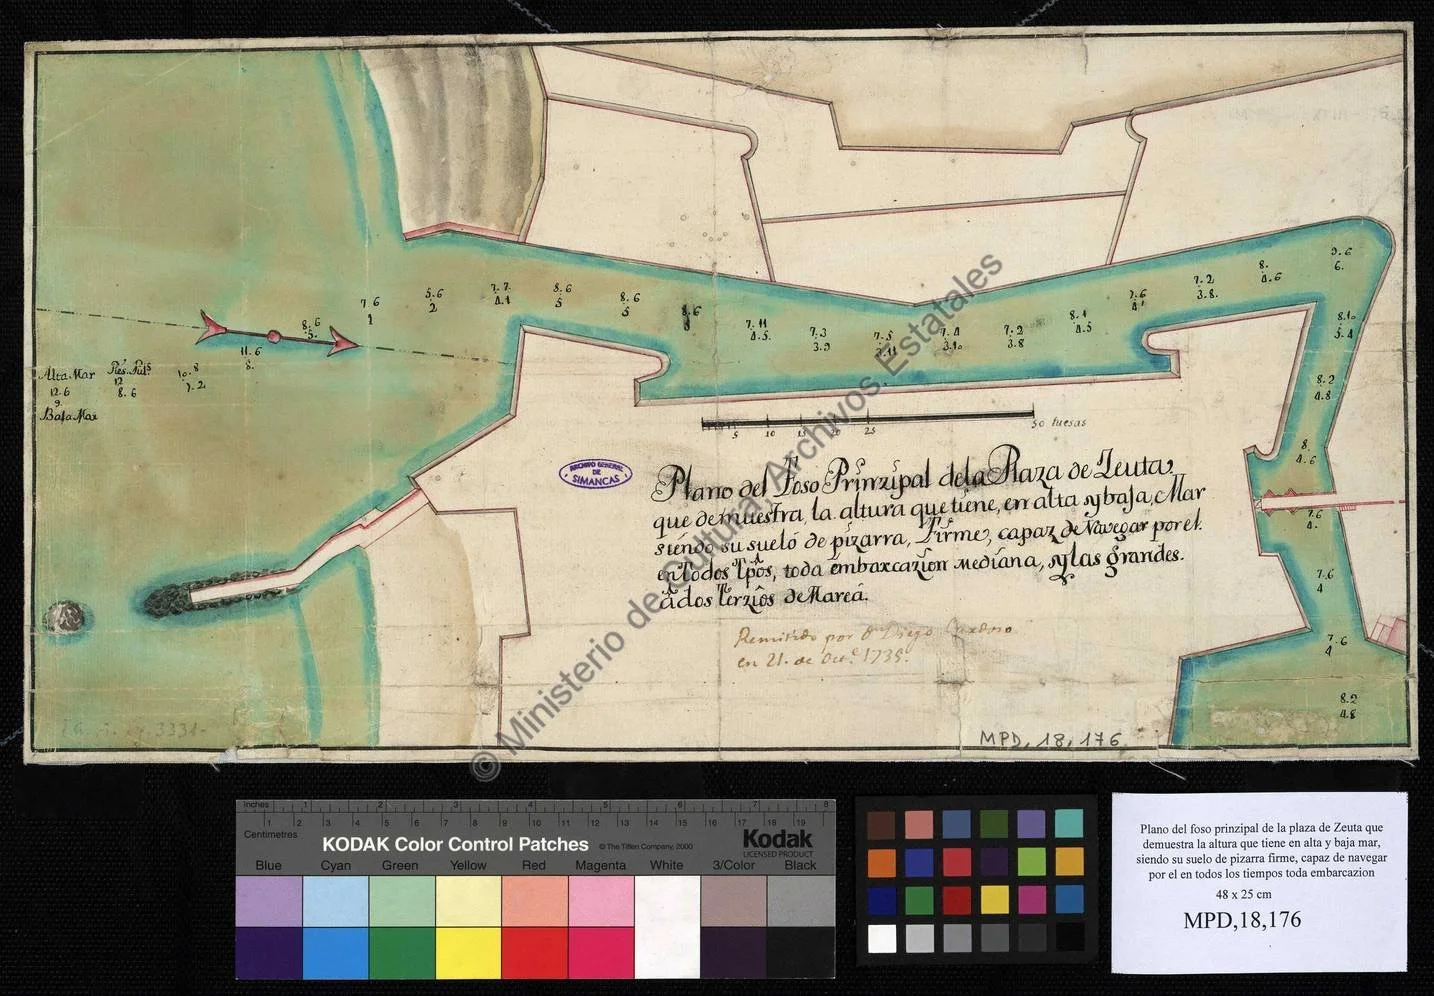 7. 6
1
5. 6
2
7. 7.
4. 1
8. 6
5
8. 6
5
8. 6
8
7. 11
4. 5.
7. 3
3. 9
7. 5
3. 11
7. 4
3. 10
7. 2
3. 8
8. 1
4. 5
7. 6
4. 1
7. 2
3. 8.
8.
4. 6
9. 6
6.
8. 10
5. 4
8. 2
4. 8
8.
4. 6
7. 6
4.
7. 6
4
7. 6
4
8. 2
4. 8
8. 6
5.
11. 6
8.
10. 8
7. 2
Alta. Mar
Pies. Pul.s
12. 6
12
9.
8. 6
Baja Mar
5
10
15
20
25
50 tuesas
ARCHIVO GENERAL
DE
SIMANCAS
Plano del Foso Prinzipal dela Plaza de Zeuta
que demuestra, la altura que tiene, en alta y baja, Mar
siendo su suelo de pizarra, Firme, capaz de Navegar por el
en todos tpõs, toda embarcazion mediana, y las grandes.
à dos Terzios de Mareá.
Remitido por Dn Diego Cardoso
en 21. de Oct.e 1735.
MPD, 18, 176
© Ministerio de Cultura, Archivos Estatales
Inches 1 2 3 4 5 6 7 8
1 2 3 4 5 6 7 8 9 10 11 12 13 14 15 16 17 18 19
Centimetres
KODAK Color Control Patches © The Tiffen Company, 2000
Kodak
LICENSED PRODUCT
Blue Cyan Green Yellow Red Magenta White 3/Color Black
Plano del foso prinzipal de la plaza de Zeuta que
demuestra la altura que tiene en alta y baja mar,
siendo su suelo de pizarra firme, capaz de navegar
por el en todos los tiempos toda embarcazion
48 x 25 cm
MPD,18,176